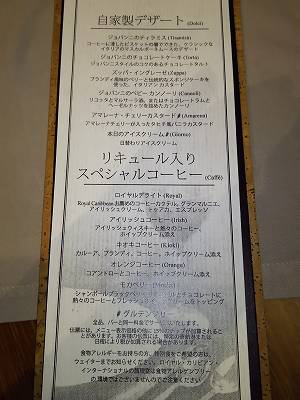 自家製デザート (Dolci)
ジョバンニのティラミス (Tiramisù)
コーヒーに浸したビスケットの層でできた、クラシックな
イタリアのマスカルポーネムースのデザート
ジョバンニのチョコレートケーキ (Torta)
ジョバンニスタイルのコクのあるチョコレートタルト
スッパ・イングレーゼ (Zuppa)
ブランディ風味のゼリーと伝統的なスポンジケーキを
使った、イタリアン カスタード
ジョバンニのベビー カンノーリ (Cannoli)
リコッタとマルサーラ酒、またはチョコレートラムと
ヘーゼルナッツを詰めたカンノーリ
アマレーナ・チェリーカスタード (Amarena)
アマレーナチェリーが入ったタヒチ風バニラカスタード
本日のアイスクリーム (Giorno)
日替わりアイスクリーム
リキュール入り
スペシャルコーヒー (Caffè)
ロイヤルデライト (Royal)
Royal Caribbeanお薦めのコーヒーカクテル。グランマルニエ、
アイリッシュクリーム、トゥアカ、エスプレッソ
アイリッシュコーヒー (Irish)
アイリッシュウィスキーと熱々のコーヒー、
ホイップクリーム添え
キオキコーヒー (Kioki)
カルーア、ブランディ、コーヒー、ホイップクリーム添え
オレンジコーヒー (Orange)
コアントローとコーヒー、ホイップクリーム添え
モカベリー
シャンボールブラックベリー
熱々のコーヒーとフレッシュホイップクリームをトッピング
グルテンフリー
食物アレルギーをお持ちの方、特別食をご希望の方は、
ウェイターまでお知らせください。ロイヤル・カリビアン・
インターナショナルの調理室は食物アレルゲンフリー
の環境ではございませんのでご注意ください